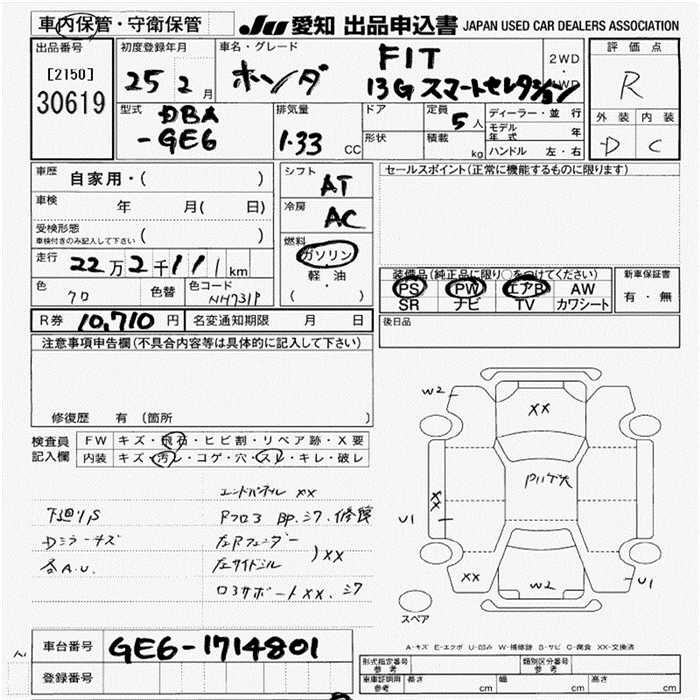 車内保管・守衛保管
JU 愛知 出品申込書 JAPAN USED CAR DEALERS ASSOCIATION
出品番号
[2150]
30619
初度登録年月
25 2月
車名・グレード
ホンダ
FIT
13G スマートセレクション
2WD
・
4WD
評価点
R
外装 内装
D C
型式
DBA
-GE6
排気量
1.33 CC
ドア
形状
定員
5人
積載
kg
ディーラー・並行
モデル年式 年
ハンドル 左・右
車歴
自家用・( )
車検
年 月( 日)
受検形態
車検付きのみ記入して下さい ( )
走行
22万2千111km
色
クロ
色替
色コード
NH731P
シフト
AT
冷房
AC
燃料
ガソリン
・
軽・油
( ・ )
セールスポイント(正常に機能するものに限ります)
装備品(純正品に限り○をつけてください)
PS PW エアB AW
SR ナビ TV カワシート
新車保証書
有・無
R券 10,710円 名変通知期限 月 日
後日品
注意事項申告欄(不具合内容等は具体的に記入して下さい)
修復歴 有(箇所
検査員
記入欄
FW キズ・飛石・ヒビ割・リペア跡・X要
内装 キズ・汚レ・コゲ・穴・スレ・キレ・破レ
エンドパネル XX
下廻りS
Dミラーキズ
各A.U.
左Rフェンダー
左サイドシル
)XX
W2
XX
XX
U1
XX
W2
U1
スペア
A-キズ E-エクボ U-凹み W-補修跡 S-サビ C-腐食 XX-交換済
車台番号 GE6-1714801
登録番号
形式指定番号
参考
類別区分番号
参考
車庫証明用
参考
長さ cm 幅 cm 高さ cm